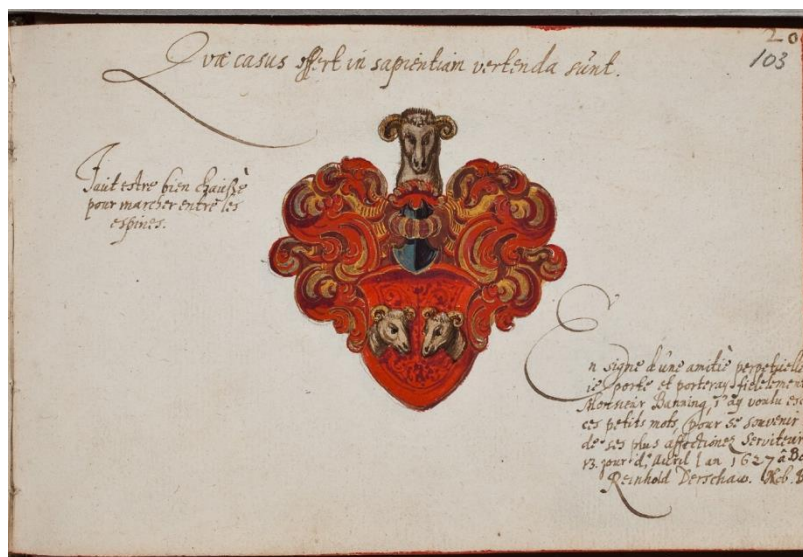 20
103
Quæ casus offert in sapientiam vertenda sunt.
Faut estre bien chaussè
pour marcher entre les
espines.
En signe d'une amitiè perpetuelle
ie porte et porteray fidelement
Monsieur Banning, j'ay voulu
ces petits mots, pour se souvenir
de ses plus affectionez Serviteur
13. jour d'Auril l'an 1627 â
Reinhold Derschaw.